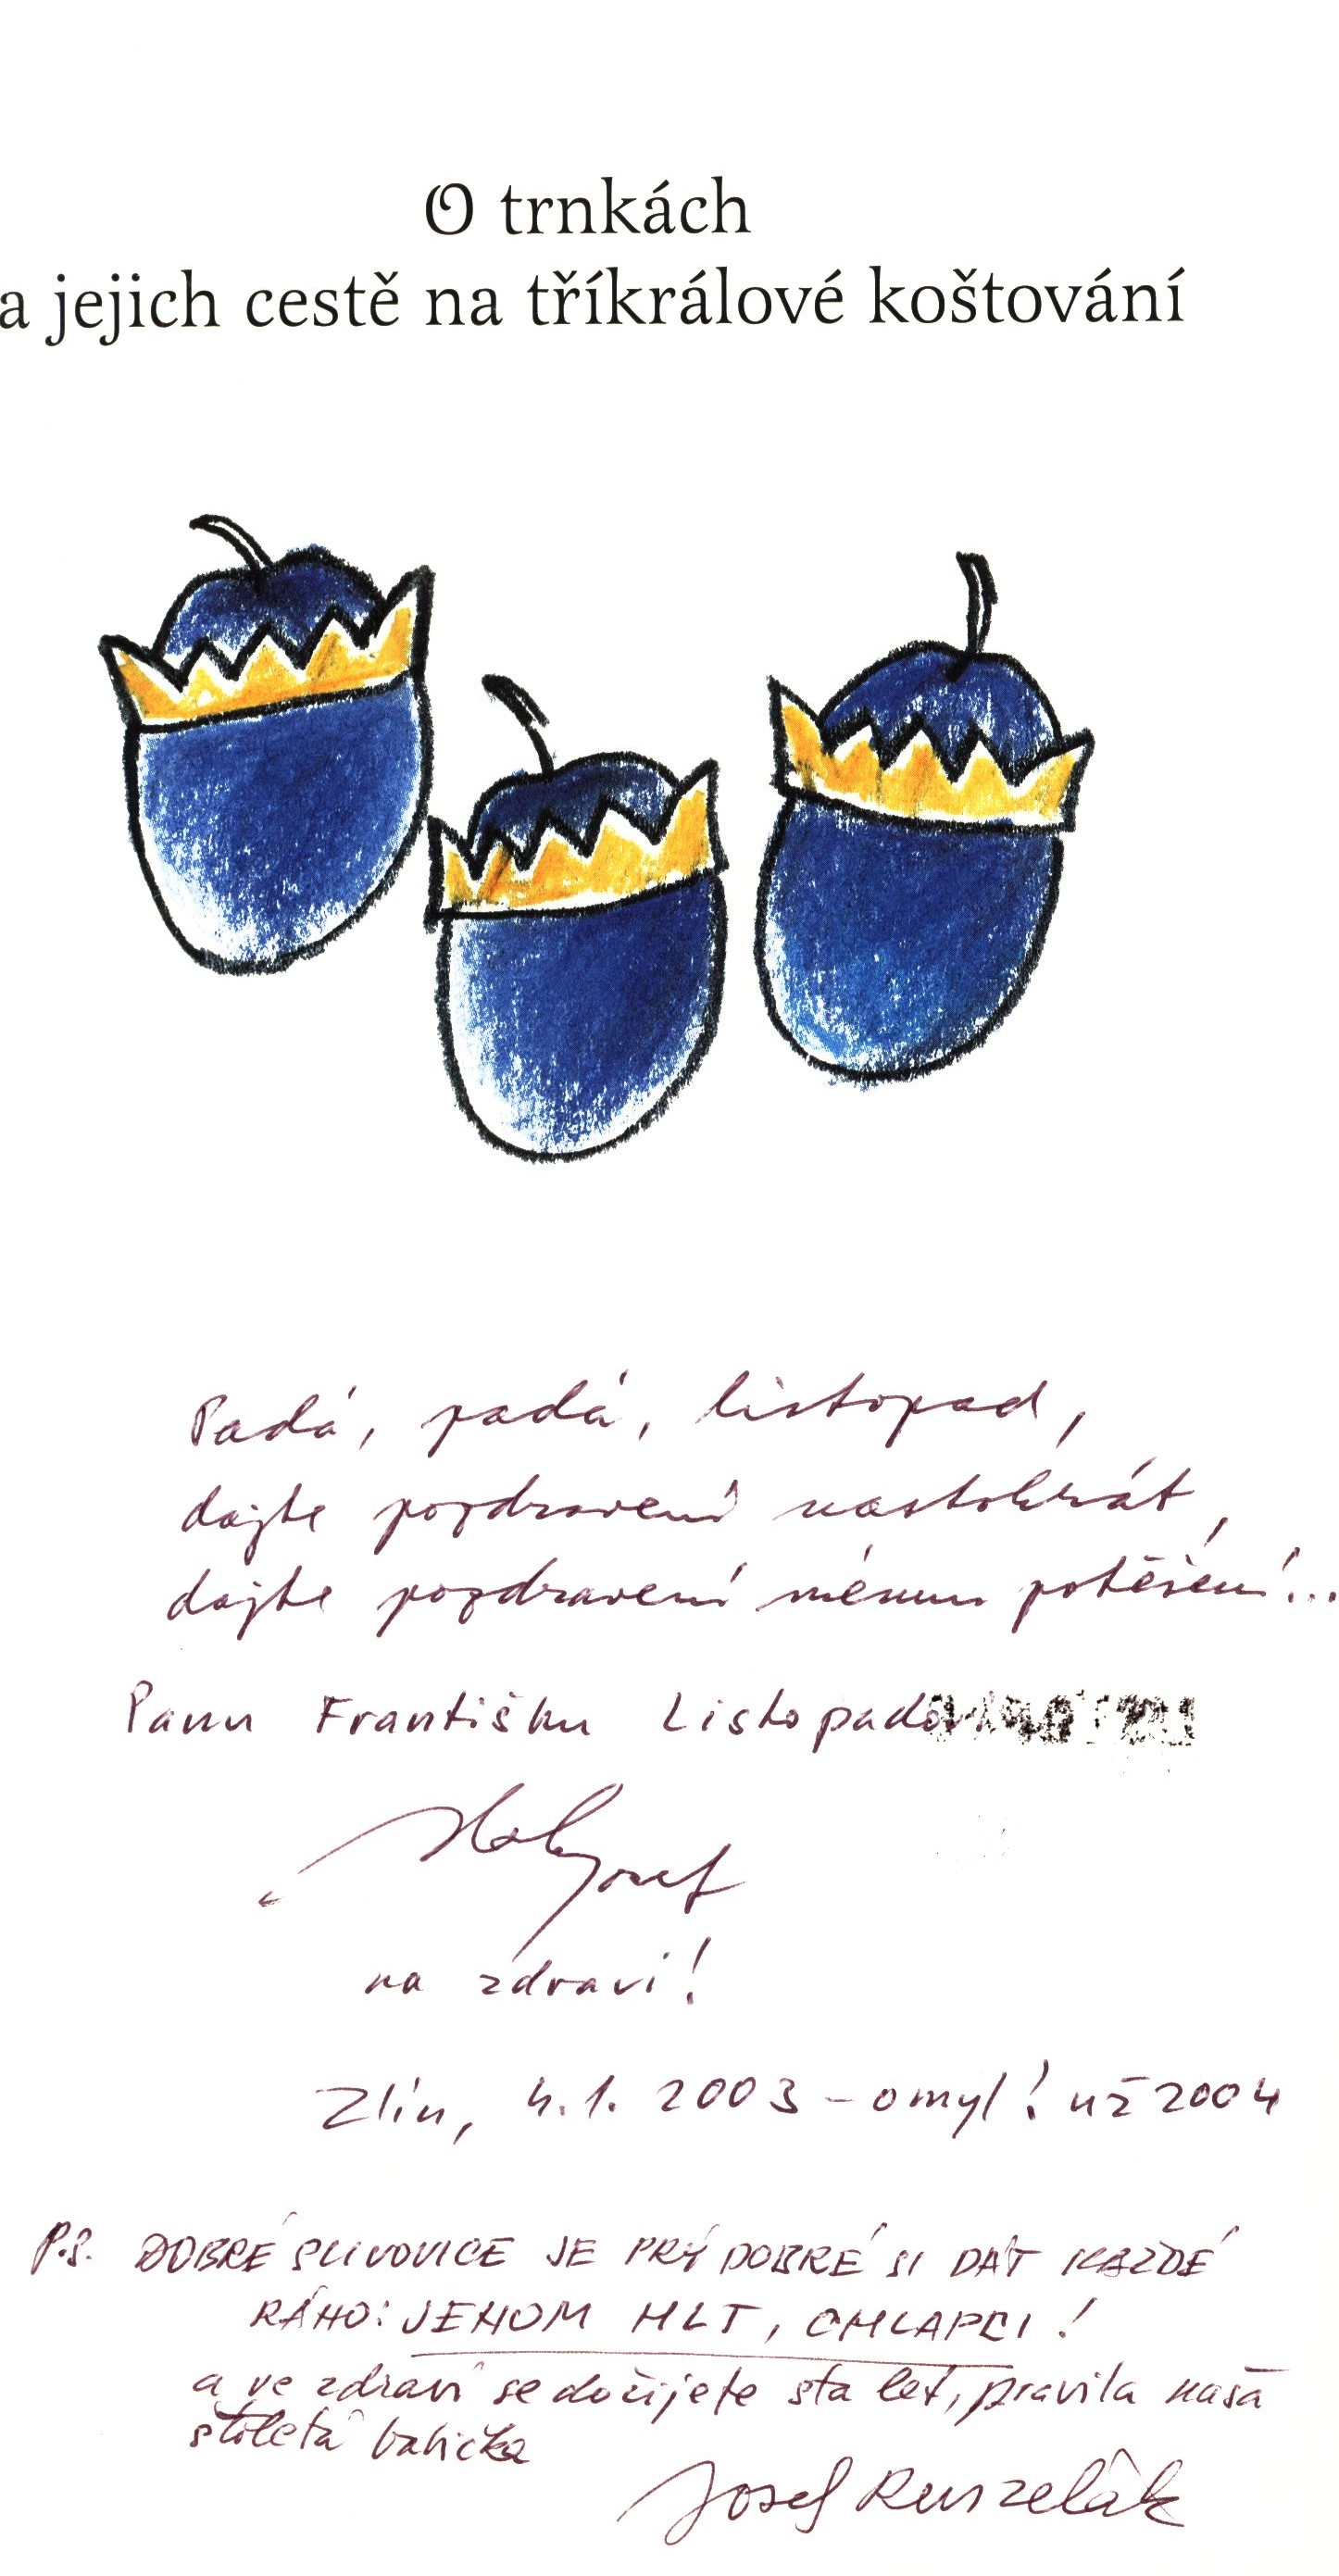 O trnkách
a jejich cestě na tříkrálové koštování
Padá, padá, listopad,
dajte pozdravení nastokrát,
dajte pozdravení mému potěšení...
Panu Františku Listopadovi
Holý Josef
na zdraví!
Zlín, 4.1. 2003 – omyl! už 2004
P.S. DOBRÉ SLIVOVICE JE PRÝ DOBRÉ SI DÁT KAŽDÉ
RÁHO: JENOM HLT, CHLAPCI!
a ve zdraví se dožijete sta let, pravila naša
stoletá babička
Josef Ruszelák